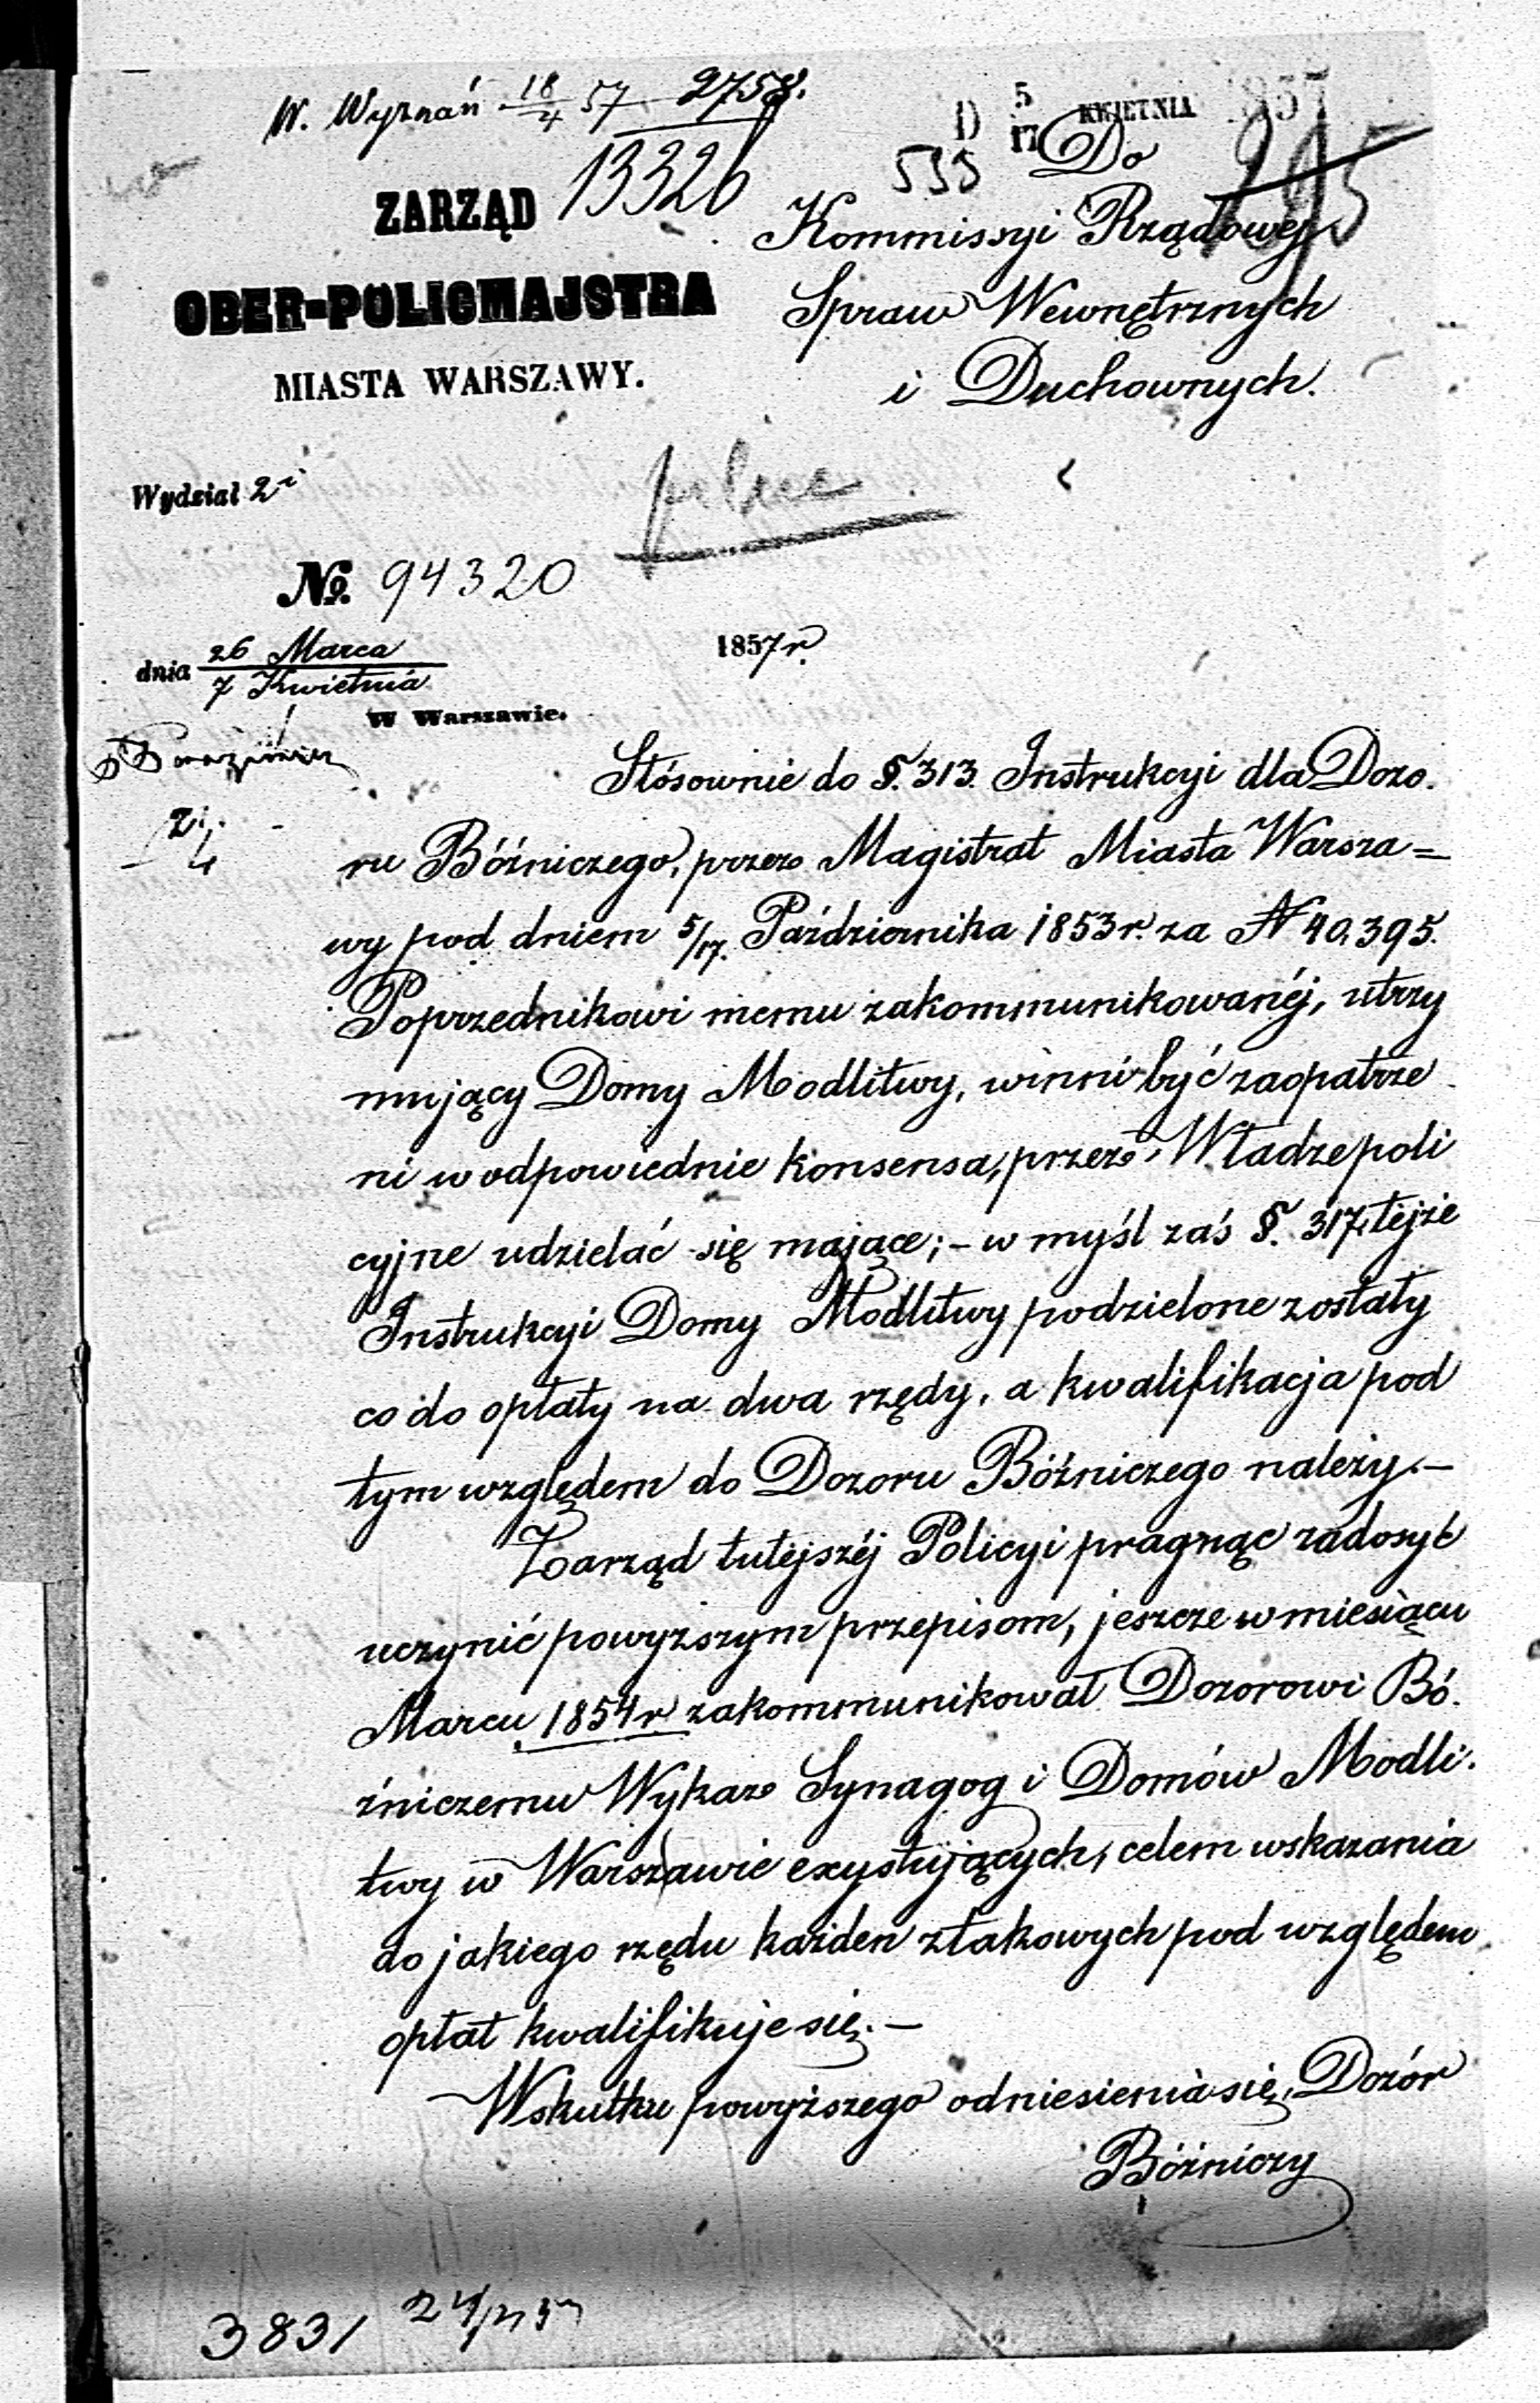 W. Wyznań 18/4 57 2758.
13326
D 5/17 KWIETNIA 1857
535
295
ZARZĄD
OBER-POLICMAJSTRA
MIASTA WARSZAWY.
Do
Kommissyi Rządowej
Spraw Wewnętrznych
i Duchownych.
Wydział 2i
pilne
No. 94320
dnia 26 Marca / 7 Kwietnia 1857 r.
W Warszawie.
Stósownie do §. 313. Instrukcyi dla Dozo-
ru Bóźniczego, przez Magistrat Miasta Warsza=
wy pod dniem 5/17. Października 1853 r. za N 40,395.
Poprzednikowi memu zakommunikowanéj, utrzy
mujący Domy Modlitwy, winni być zaopatrze
ni w odpowiednie konsensa, przez Władze poli
cyjne udzielać się mające; – w myśl zaś §. 317, tejże
Instrukcyi Domy Modlitwy podzielone zostały
co do opłaty na dwa rzędy, a kwalifikacja pod
tym względem do Dozoru Bóźniczego należy. –
Zarząd tutejszéj Policyi pragnąc zadosyć
uczynić powyższym przepisom, jeszcze w miesiącu
Marcu 1854 r. zakommunikował Dozorowi Bó-
źniczemu Wykaz Synagog i Domów Modli-
twy w Warszawie exystujących, celem wskazania
do jakiego rzędu każden z takowych pod względem
opłat kwalifikuje się. –
Wskutku powyższego odniesienia się, Dozór
Bóźniczy
3831